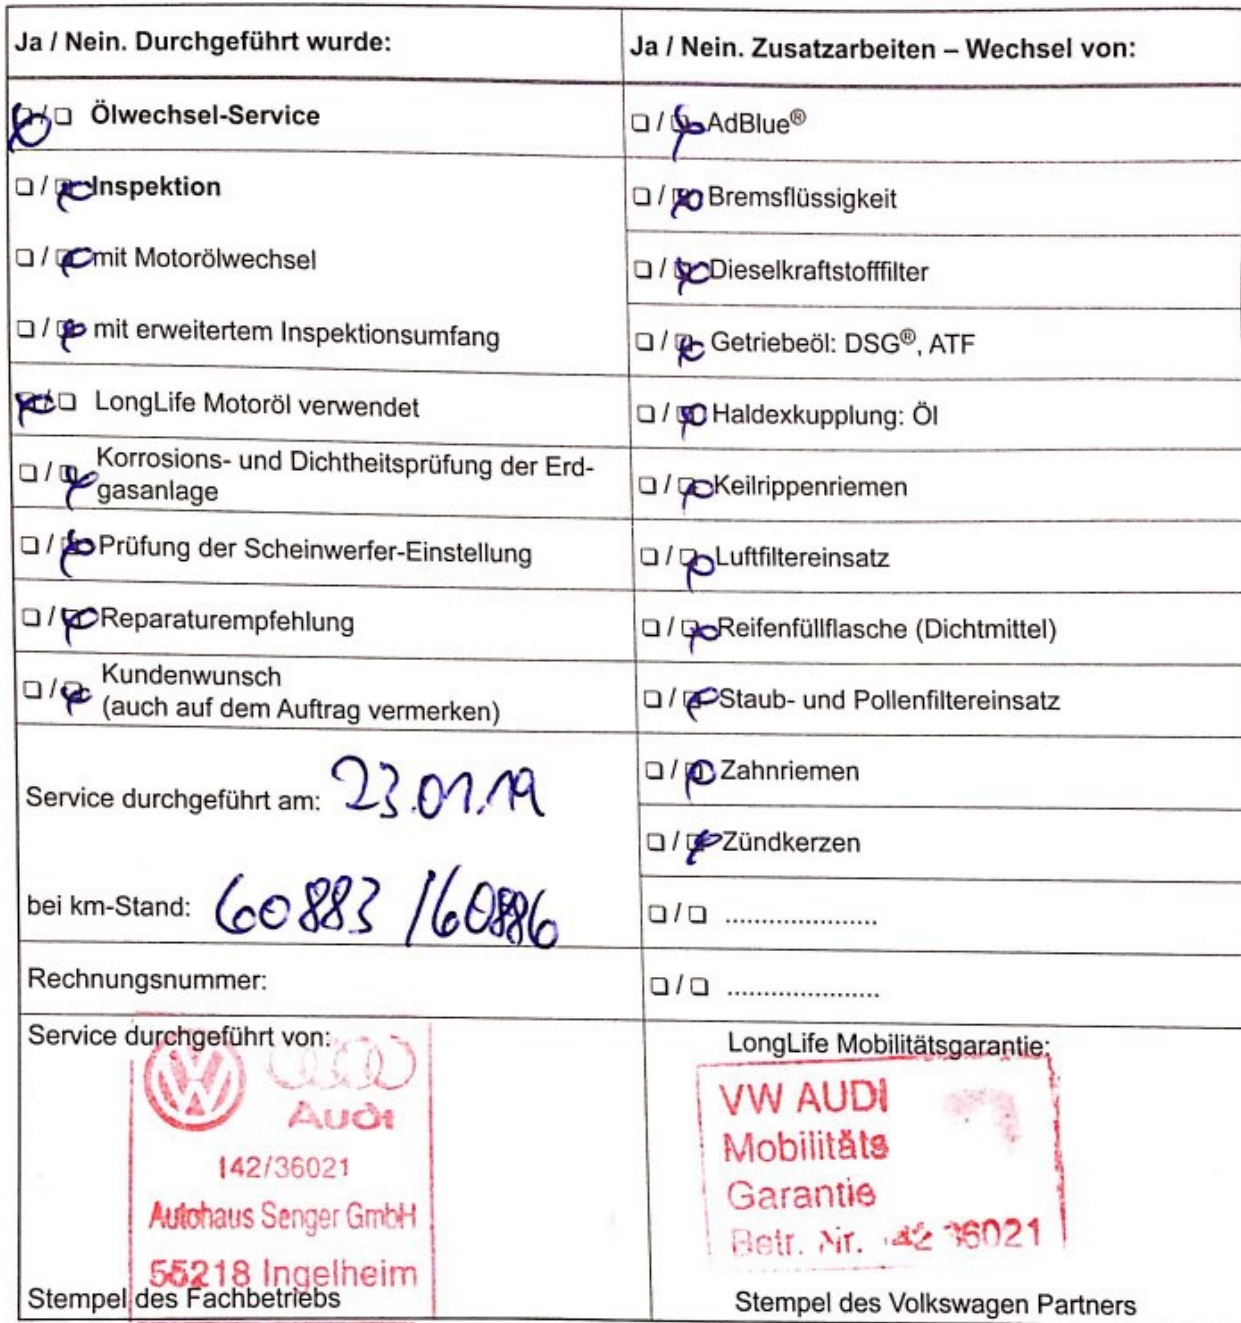 Ja / Nein. Durchgeführt wurde:
☒ / ☐ Ölwechsel-Service
☐ / ☒ Inspektion
☐ / ☒ mit Motorölwechsel
☐ / ☒ mit erweitertem Inspektionsumfang
☒ / ☐ LongLife Motoröl verwendet
☐ / ☒ Korrosions- und Dichtheitsprüfung der Erd-
gasanlage
☐ / ☒ Prüfung der Scheinwerfer-Einstellung
☐ / ☒ Reparaturempfehlung
☐ / ☒ Kundenwunsch
(auch auf dem Auftrag vermerken)
Service durchgeführt am: 23.01.19
bei km-Stand: 60883 / 60886
Rechnungsnummer:
Service durchgeführt von:
VW
Audi
142/36021
Autohaus Senger GmbH
55218 Ingelheim
Stempel des Fachbetriebs
Ja / Nein. Zusatzarbeiten – Wechsel von:
☐ / ☒ AdBlue®
☐ / ☒ Bremsflüssigkeit
☐ / ☒ Dieselkraftstofffilter
☐ / ☒ Getriebeöl: DSG®, ATF
☐ / ☒ Haldexkupplung: Öl
☐ / ☒ Keilrippenriemen
☐ / ☒ Luftfiltereinsatz
☐ / ☒ Reifenfüllflasche (Dichtmittel)
☐ / ☒ Staub- und Pollenfiltereinsatz
☐ / ☒ Zahnriemen
☐ / ☒ Zündkerzen
☐ / ☐ .....................
☐ / ☐ .....................
LongLife Mobilitätsgarantie:
VW AUDI
Mobilitäts
Garantie
Betr. Nr. 142 36021
Stempel des Volkswagen Partners